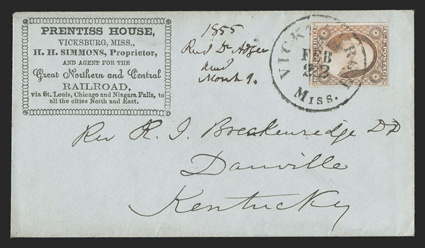 PRENTISS HOUSE,
VICKSBURG, MISS.,
H. H. SIMMONS, Proprietor,
AND AGENT FOR THE
Great Northern and Central
RAILROAD,
via St. Louis, Chicago and Niagara Falls, to
all the cities North and East.
1855
Rev Dr
VICKSBURG
FEB
22
MISS.
Rev R. J. Breckenredge DD
Danville
Kentucky